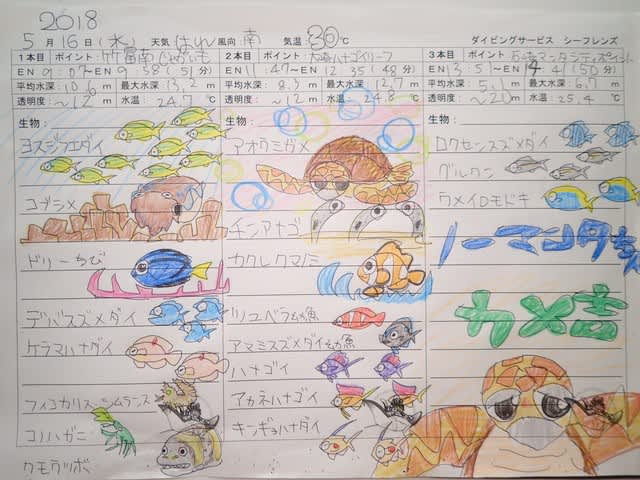 2018
5月16日(水) 天気 はれ 風向:南 気温:30℃ ダイビングサービス シーフレンズ
1本目 ポイント:竹富南じゃがいも
EN 9:07~EN 9:58(51分)
平均水深:10.6m 最大水深:13.2m
透明度:~12m 水温:24.7℃
生物:
ヨスジフエダイ
コブシメ
ドリーちび
デバスズメダイ
ケラマハナダイ
コノハガニ
クモウツボ
2本目 ポイント:大崎ハナゴイリーフ
EN 11:47~EN 12:35(48分)
平均水深:8.3m 最大水深:12.7m
透明度:~12m 水温:24.8℃
生物:
アオウミガメ
チンアナゴ
カクレクマノミ
ソメワケベラ幼魚
アマミスズメダイ幼魚
ハナゴイ
アカネハナゴイ
キンギョハナダイ
3本目 ポイント:石崎マンタシティポイント
EN 13:51~EN 14:41(50分)
平均水深:5.1m 最大水深:6.7m
透明度:~20m 水温:25.4℃
生物:
ロクセンスズメダイ
グルクン
ウメイロモドキ
ノーマンタちん
カメ吉